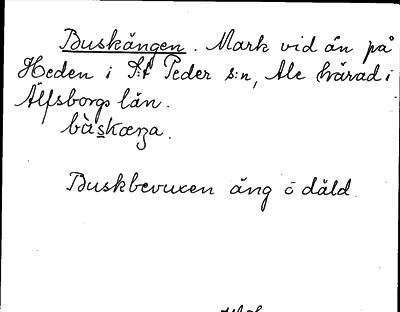 Buskängen. Mark vid ån på
Heden i S:t Peder s:n, Ale härad i
Älfsborgs län.
Buskbevuxen äng o däld.